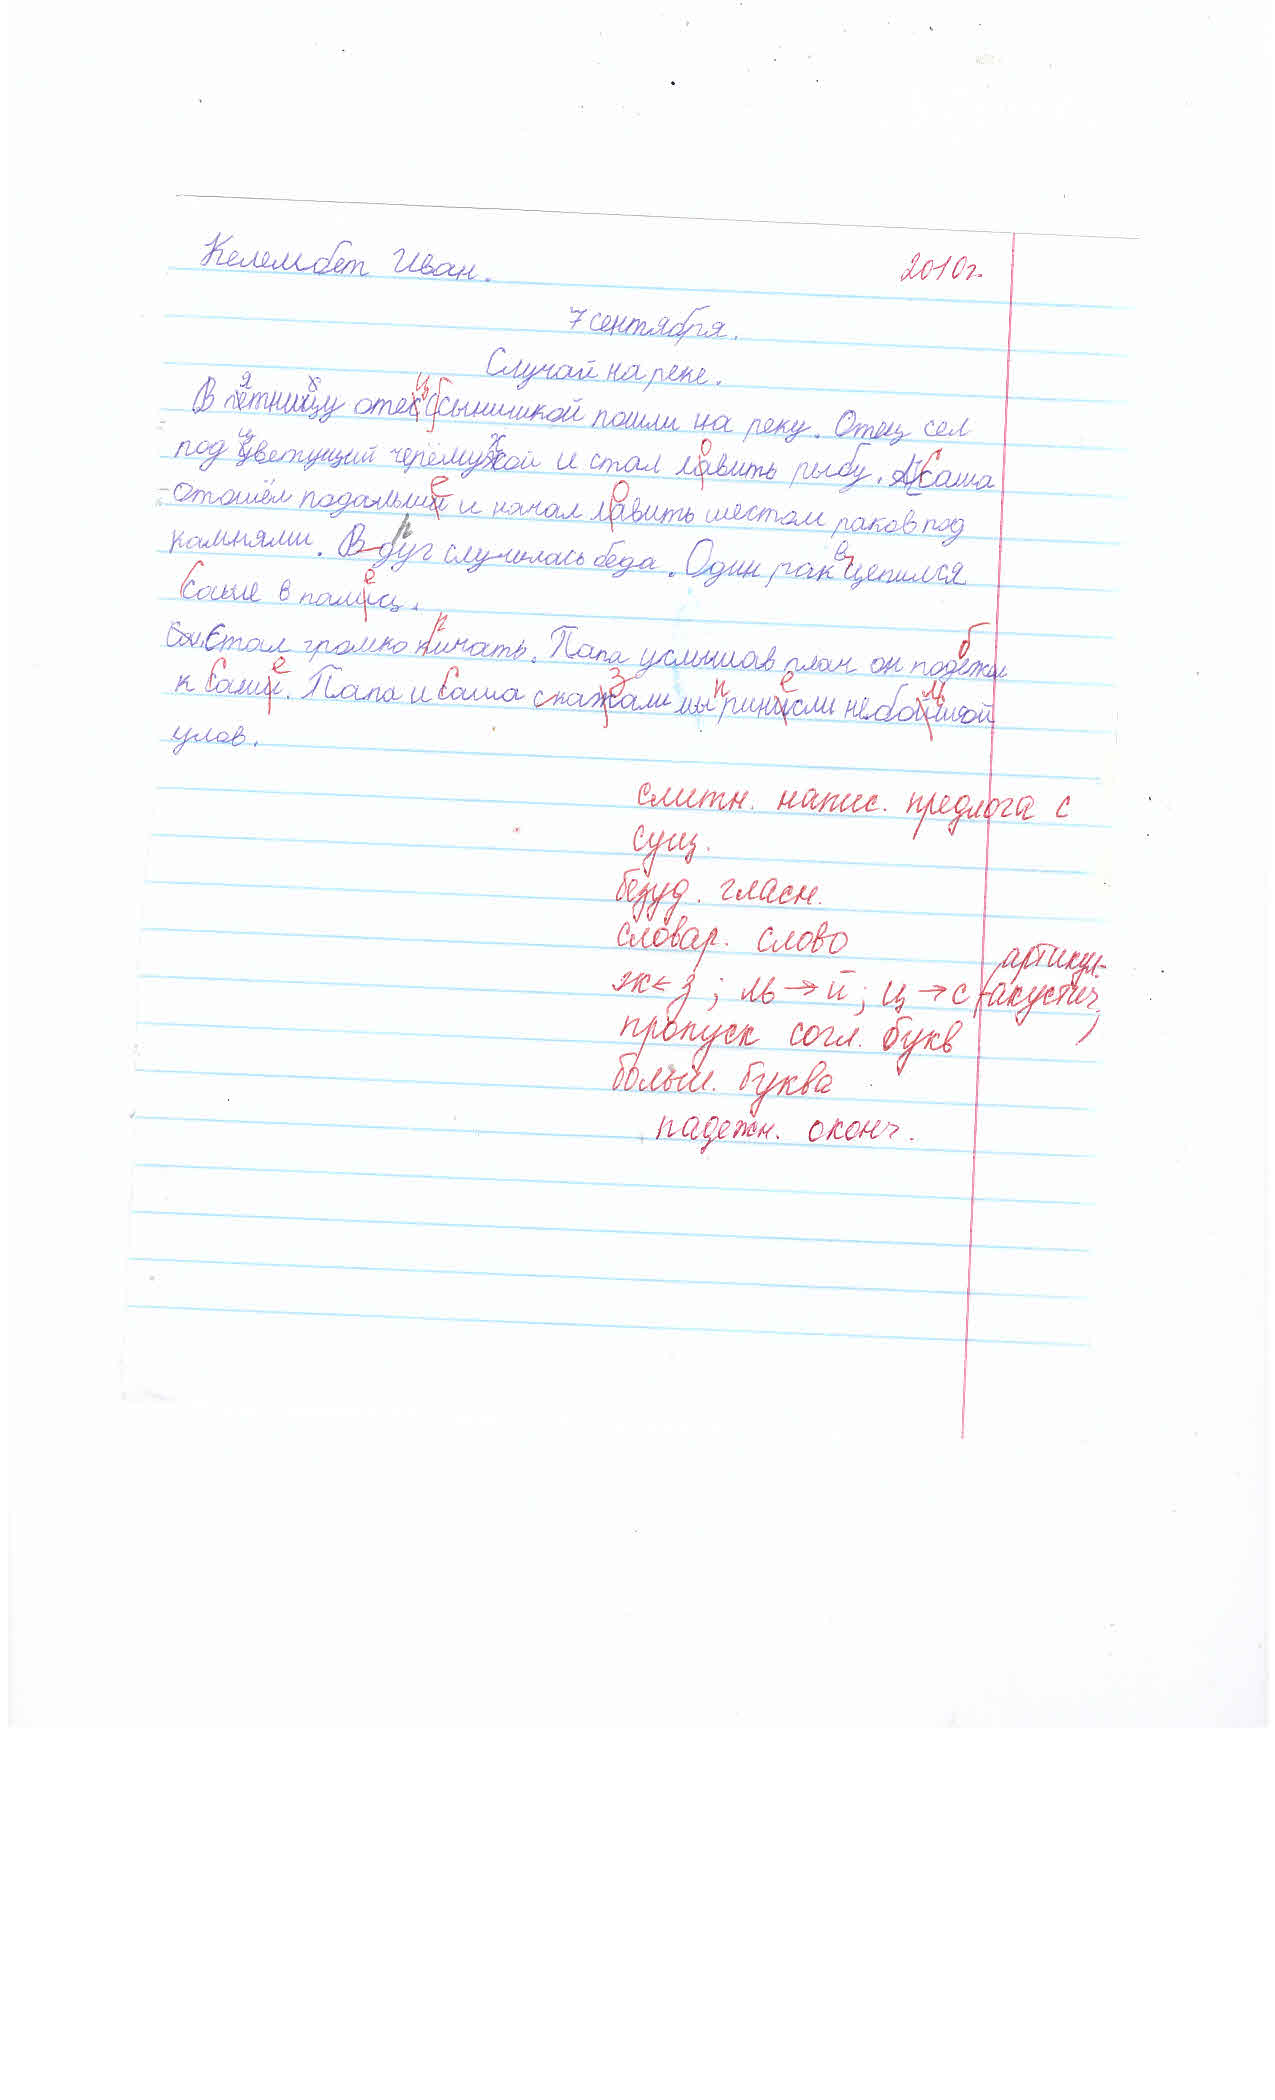 Келембет Иван.
2010г.
7 сентября.
Случай на реке.
В пятницу отец с сынишкой пошли на реку. Отец сел
под цветущий черёмухой и стал лавить рыбу. А Саша
отошёл подальши и начал лавить шестом раков под
камнями. В друг случилась беда. Один рак вцепился
Саше в палиц.
Стал громко кричать. Папа услышав плач он подбежал
к Саши. Папа и Саша скажали мы принисли небойшой
улов.
слитн. напис. предлога с
сущ.
безуд. гласн.
словар. слово
ж ← з ; ль → й ; ц → с
артикул-
акустич.,
пропуск согл. букв
больш. буква
падежн. оконч.